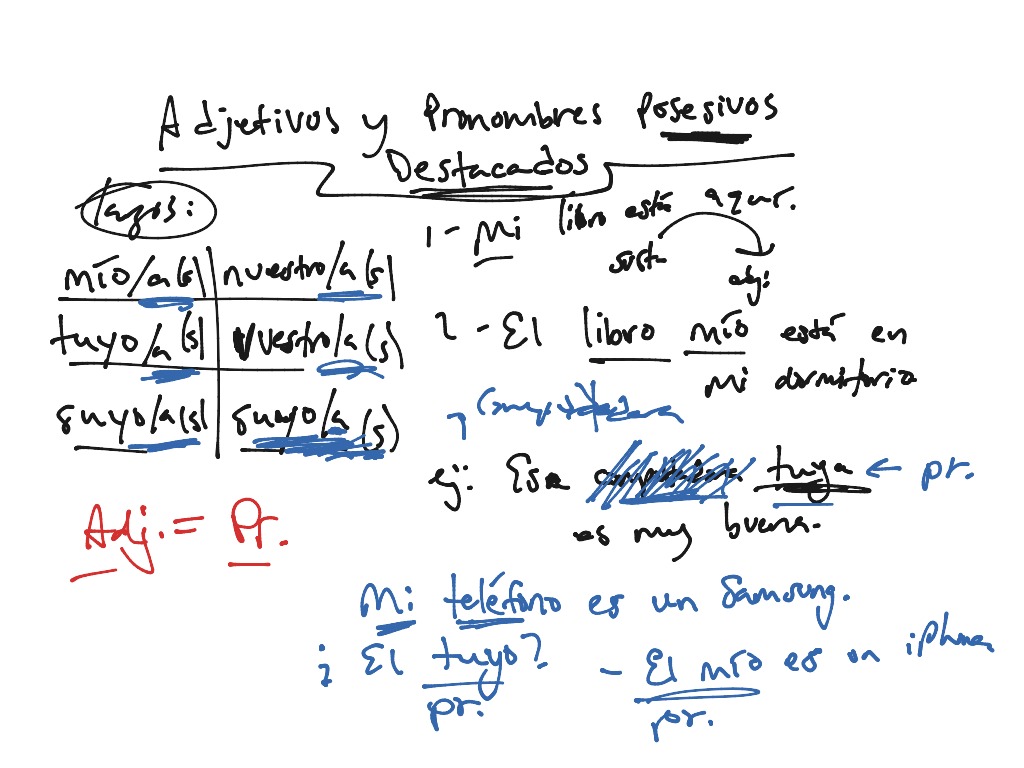 Adjetivos y Pronombres Posesivos
Destacados
1 - Mi libro está
adj:
mío/a(s) nuestro/a(s)
tuyo/a(s) vuestro/a(s)
suyo/a(s) suyo/a(s)
2 - El libro mío está en
mi dormitorio
ej: Esa tuya ← pr.
es muy buena.
Adj. = Pr.
Mi teléfono es un Samsung.
¿El tuyo? - El mío es un iphone
pr. por.